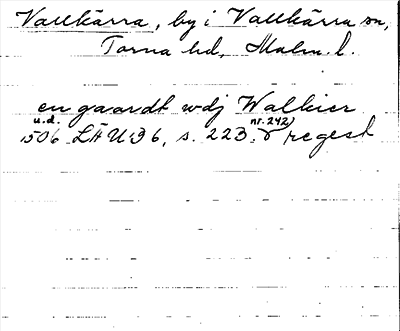 Vallkärra, by i Vallkärra sn,
Torna hd, Malm. l.
en gaardt wdj Walkier
u.d.
1506 LÄU 36, s. 223. regest
nr. 242)